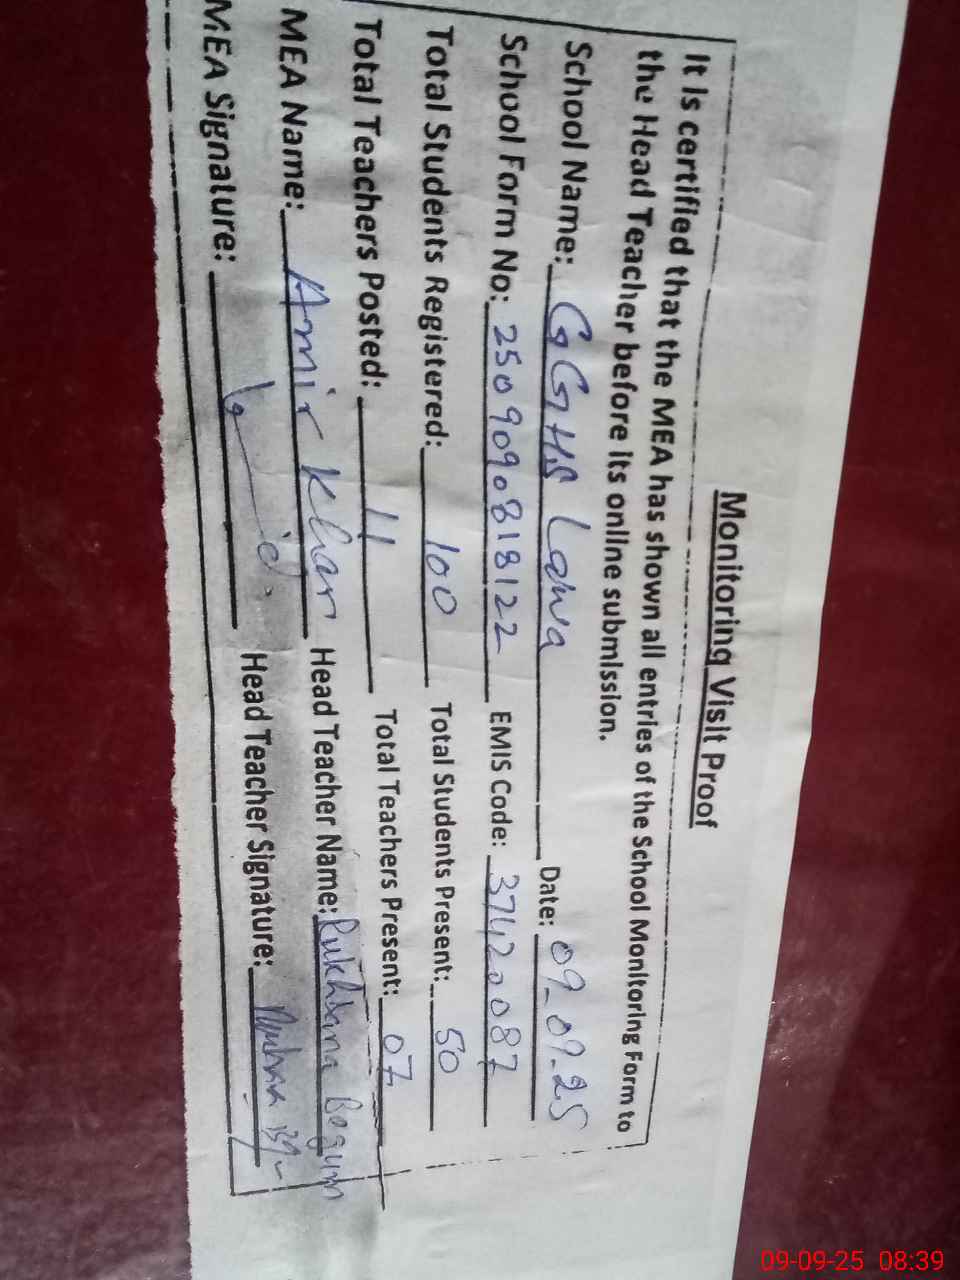 Monitoring Visit Proof
It is certified that the MEA has shown all entries of the School Monitoring Form to
the Head Teacher before its online submission.
School Name: GGHS Lawa Date: 09-09-25
School Form No: 2509090818122 EMIS Code: 37420087
Total Students Registered: 100 Total Students Present: 50
Total Teachers Posted: 11 Total Teachers Present: 07
MEA Name: Amir Khan Head Teacher Name: Rukhsana Begum
MEA Signature: Head Teacher Signature:
09-09-25 08:39